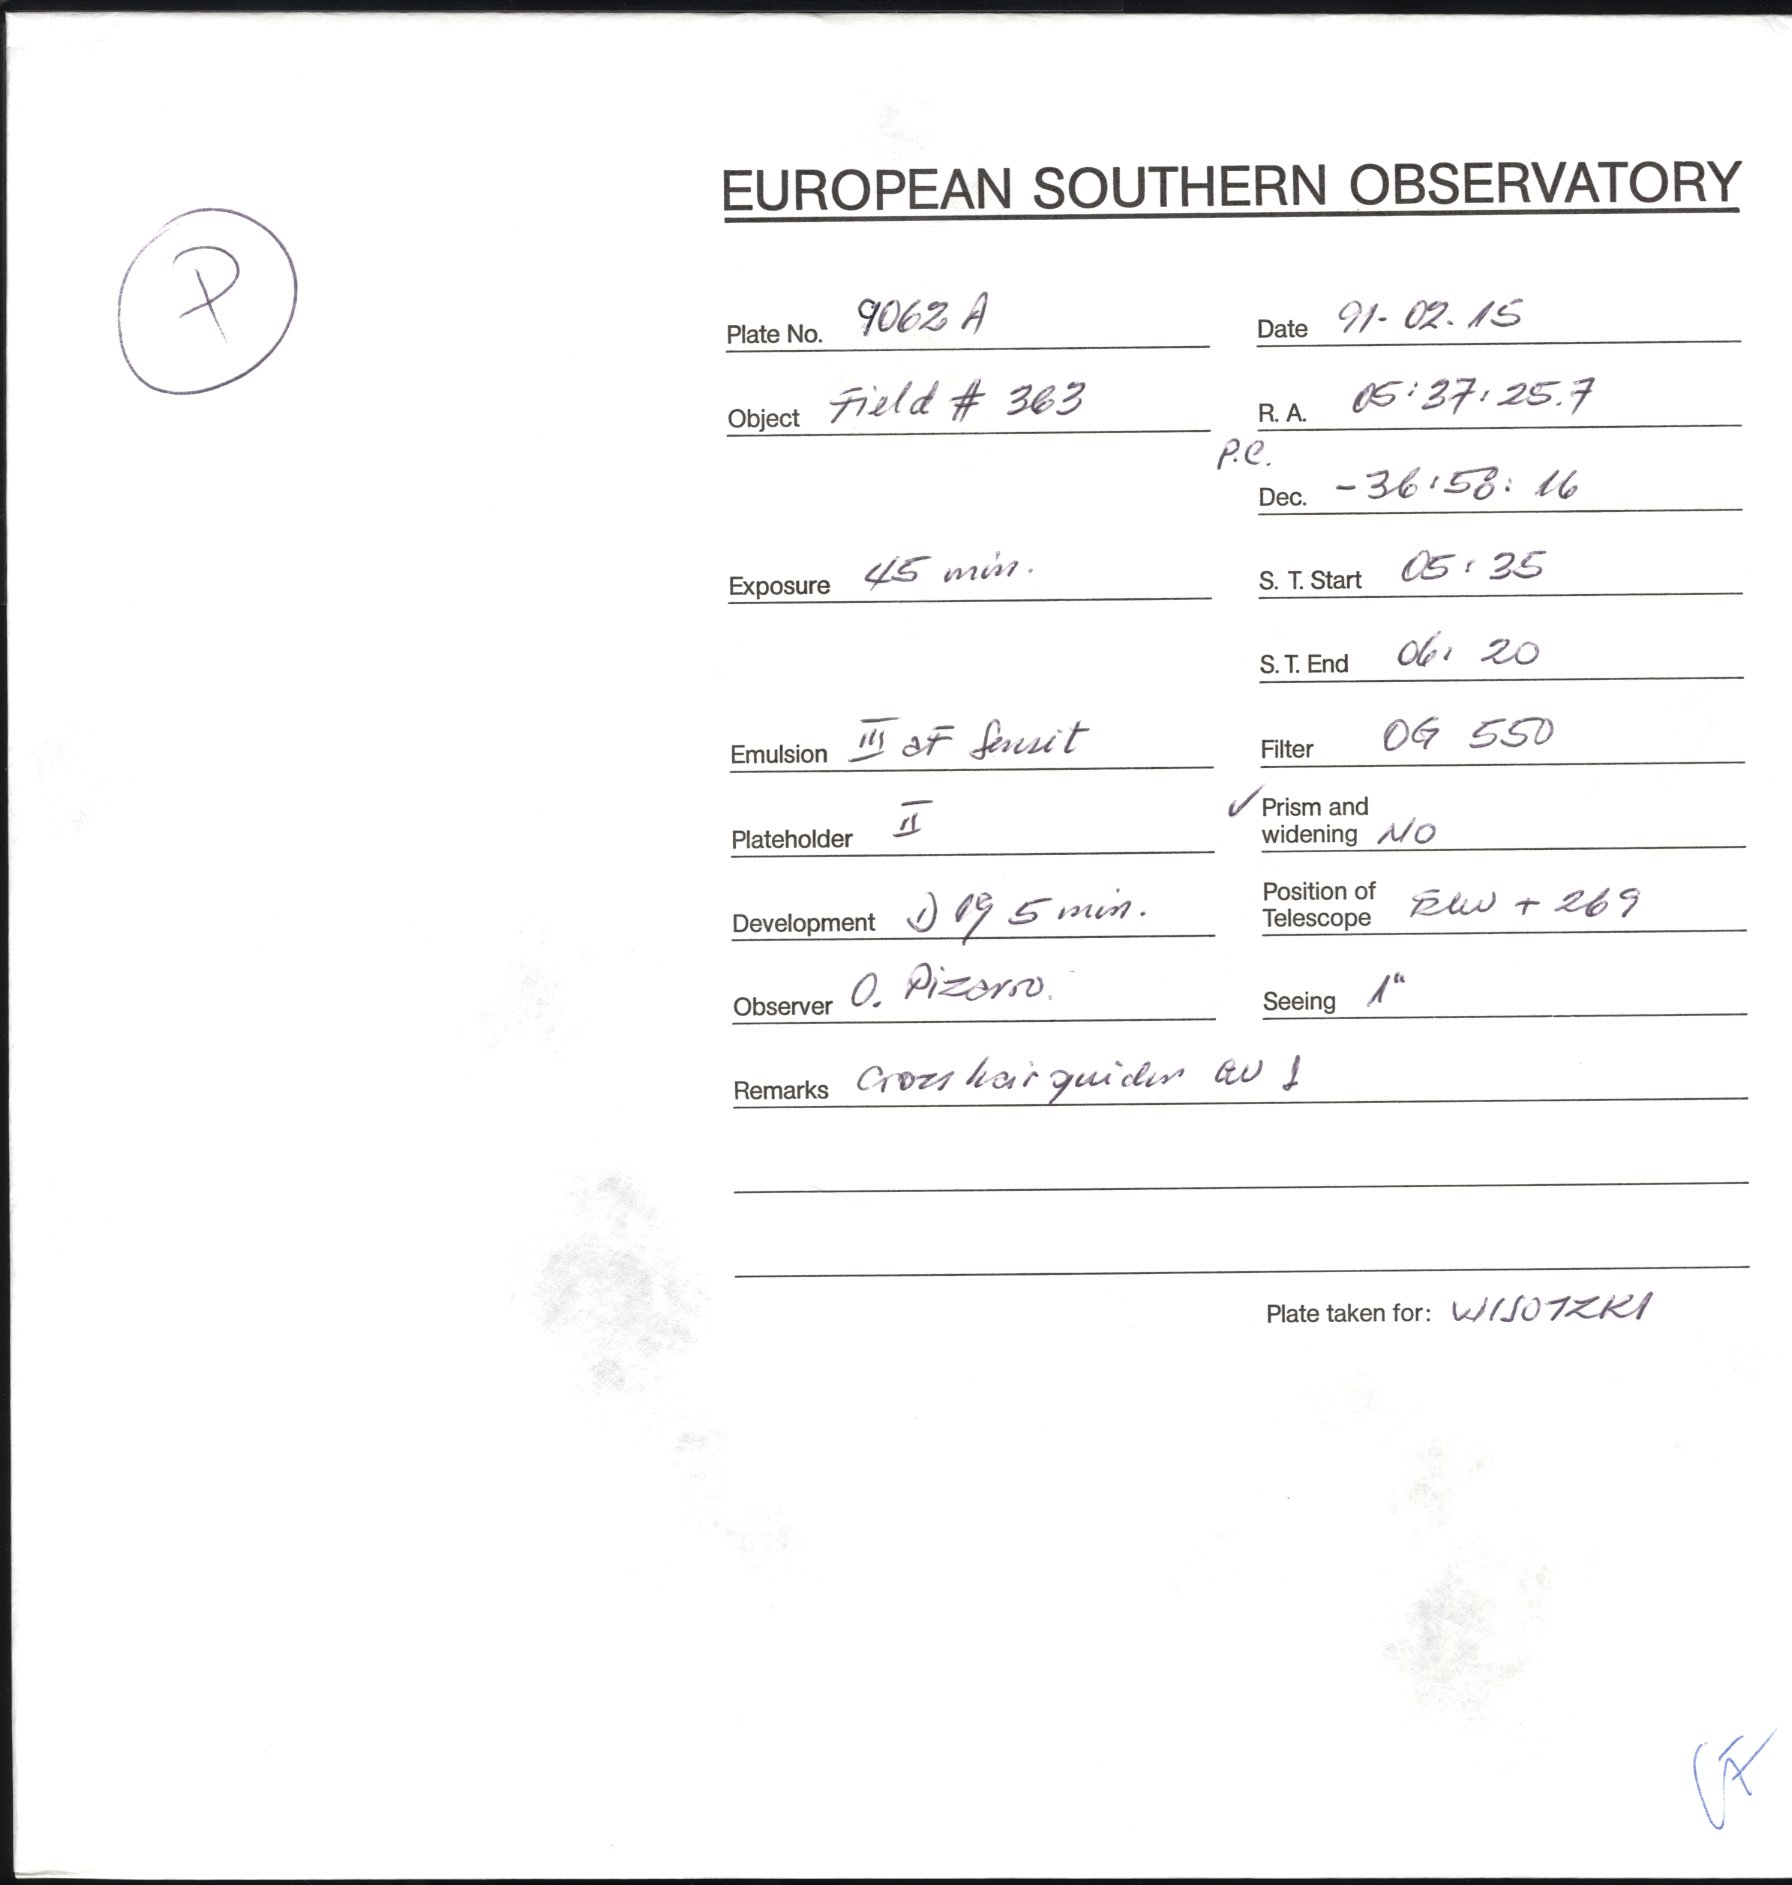 EUROPEAN SOUTHERN OBSERVATORY
P
Plate No. 9062 A Date 91-02-15
Object Field # 363 R. A. 05:37:25.7
P.C.
Dec. -36:58:16
Exposure 45 min. S. T. Start 05:35
S. T. End 06:20
Emulsion III aF Sensit Filter OG 550
Plateholder II ✓ Prism and
widening NO
Development D 19 5 min. Position of
Telescope + 269
Observer O. Pizarro. Seeing 1"
Remarks Cross hair guider
Plate taken for: WISOTZKI